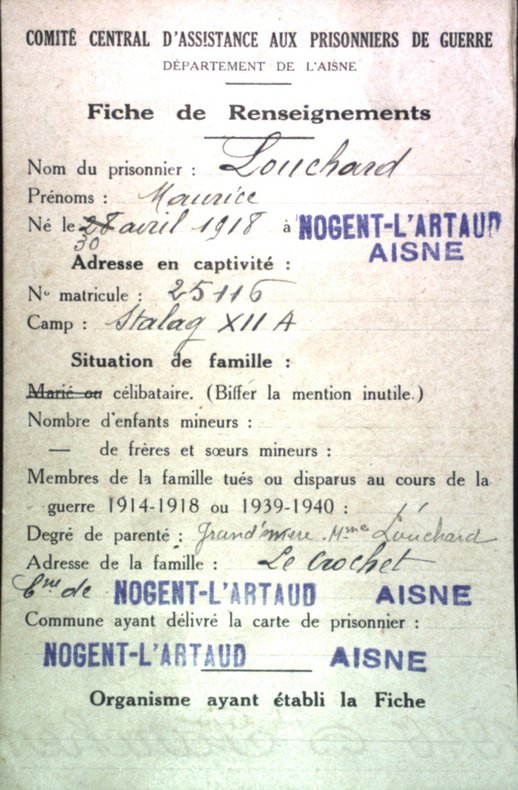 COMITÉ CENTRAL D'ASSISTANCE AUX PRISONNIERS DE GUERRE
DÉPARTEMENT DE L'AISNE
Fiche de Renseignements
Nom du prisonnier : Louchard
Prénoms : Maurice
Né le 28 avril 1918 à NOGENT-L'ARTAUD
30 AISNE
Adresse en captivité :
No matricule : 25116
Camp : Stalag XII A
Situation de famille :
Marié ou célibataire. (Biffer la mention inutile.)
Nombre d'enfants mineurs :
— de frères et sœurs mineurs :
Membres de la famille tués ou disparus au cours de la
guerre 1914-1918 ou 1939-1940 :
Degré de parenté : Grand'mère. Mme Louchard
Adresse de la famille : Le Crochet
Cne de NOGENT-L'ARTAUD AISNE
Commune ayant délivré la carte de prisonnier :
NOGENT-L'ARTAUD AISNE
Organisme ayant établi la Fiche